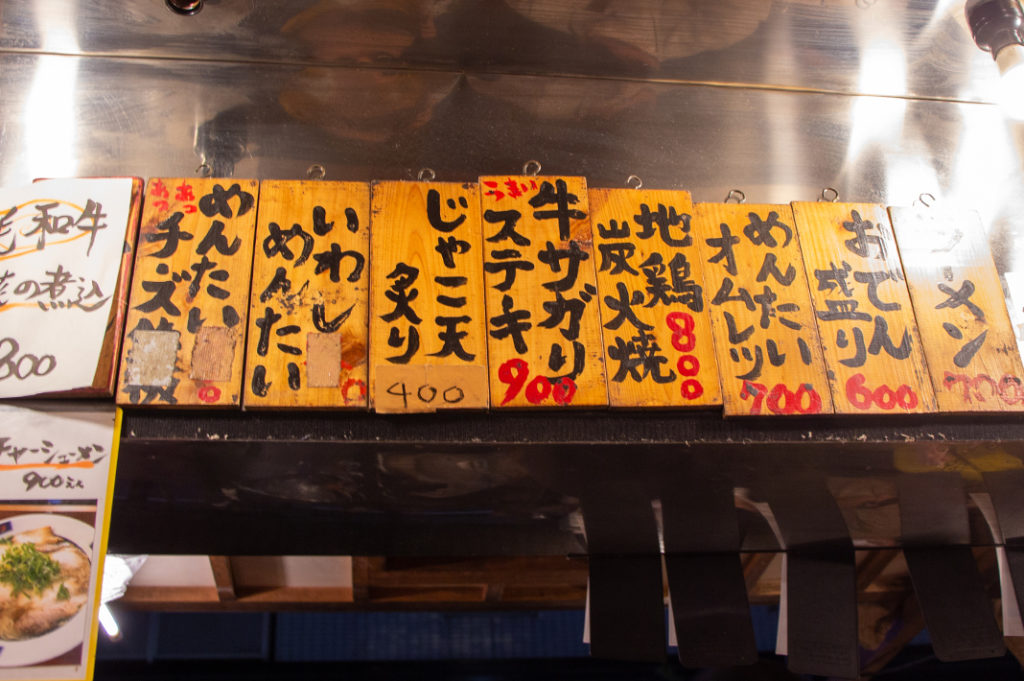 牛
和
煮込
800
チャーシューメン
900
あつ
あつ
めんたい
チーズ
0
いわし
めんたい
0
じゃこ天
炙り
400
うまい
牛サガリ
ステキ
900
地鶏
炭火焼
800
めんたい
オムレツ
700
おでん
盛り
600
ラーメン
700